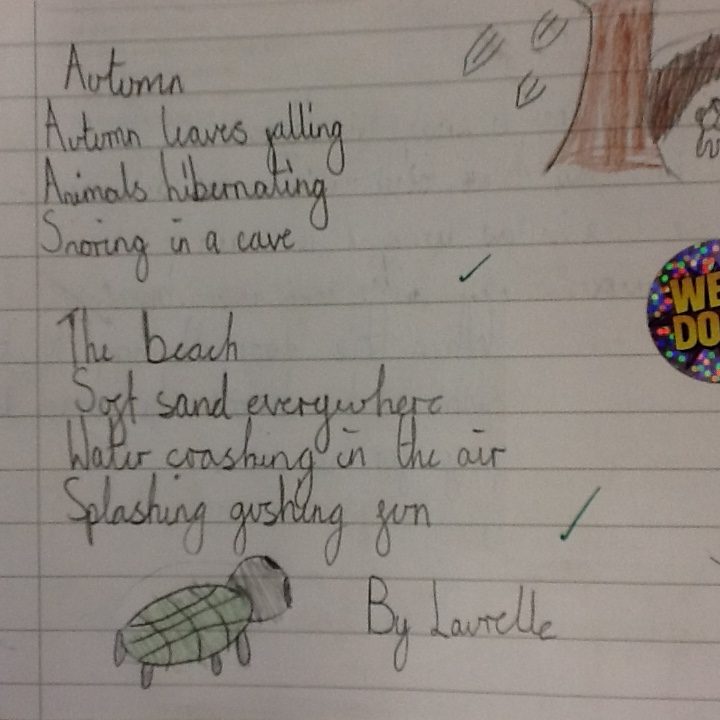 Autumn
Autumn leaves falling
Animals hibernating
Snoring in a cave
WE
DO
The beach
Soft sand everywhere
Water crashing in the air
Splashing gushing fun
By Laurelle